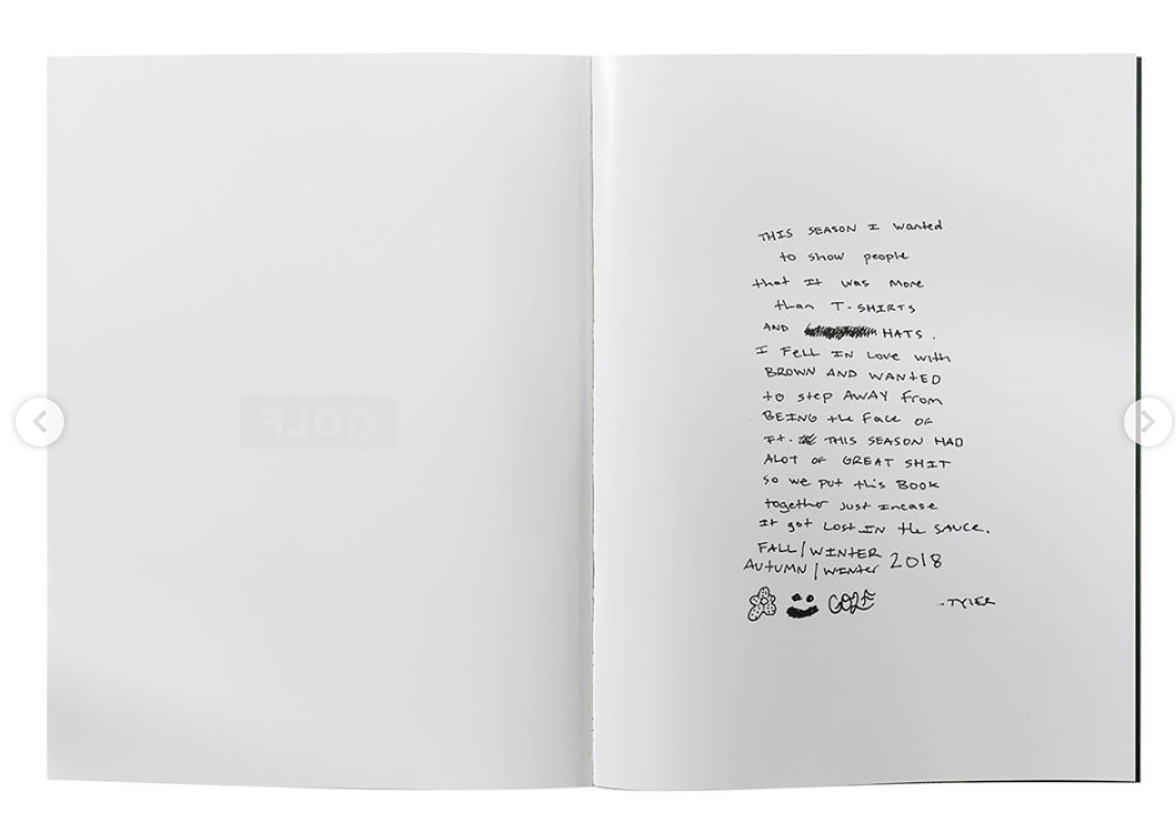 GOLF
THIS SEASON I wanted
to show people
that It was more
than T-SHIRTS
AND HATS.
I Fell IN Love with
BROWN AND WANtED
to step AWAY from
BEING the Face OF
It. THIS SEASON HAD
ALOT OF GREAT SHIT
so we put this Book
together Just Incase
It got Lost IN the SAUCE.
FALL/WINtER
AUtUMN/Winter 2018
GOLF -TYlER